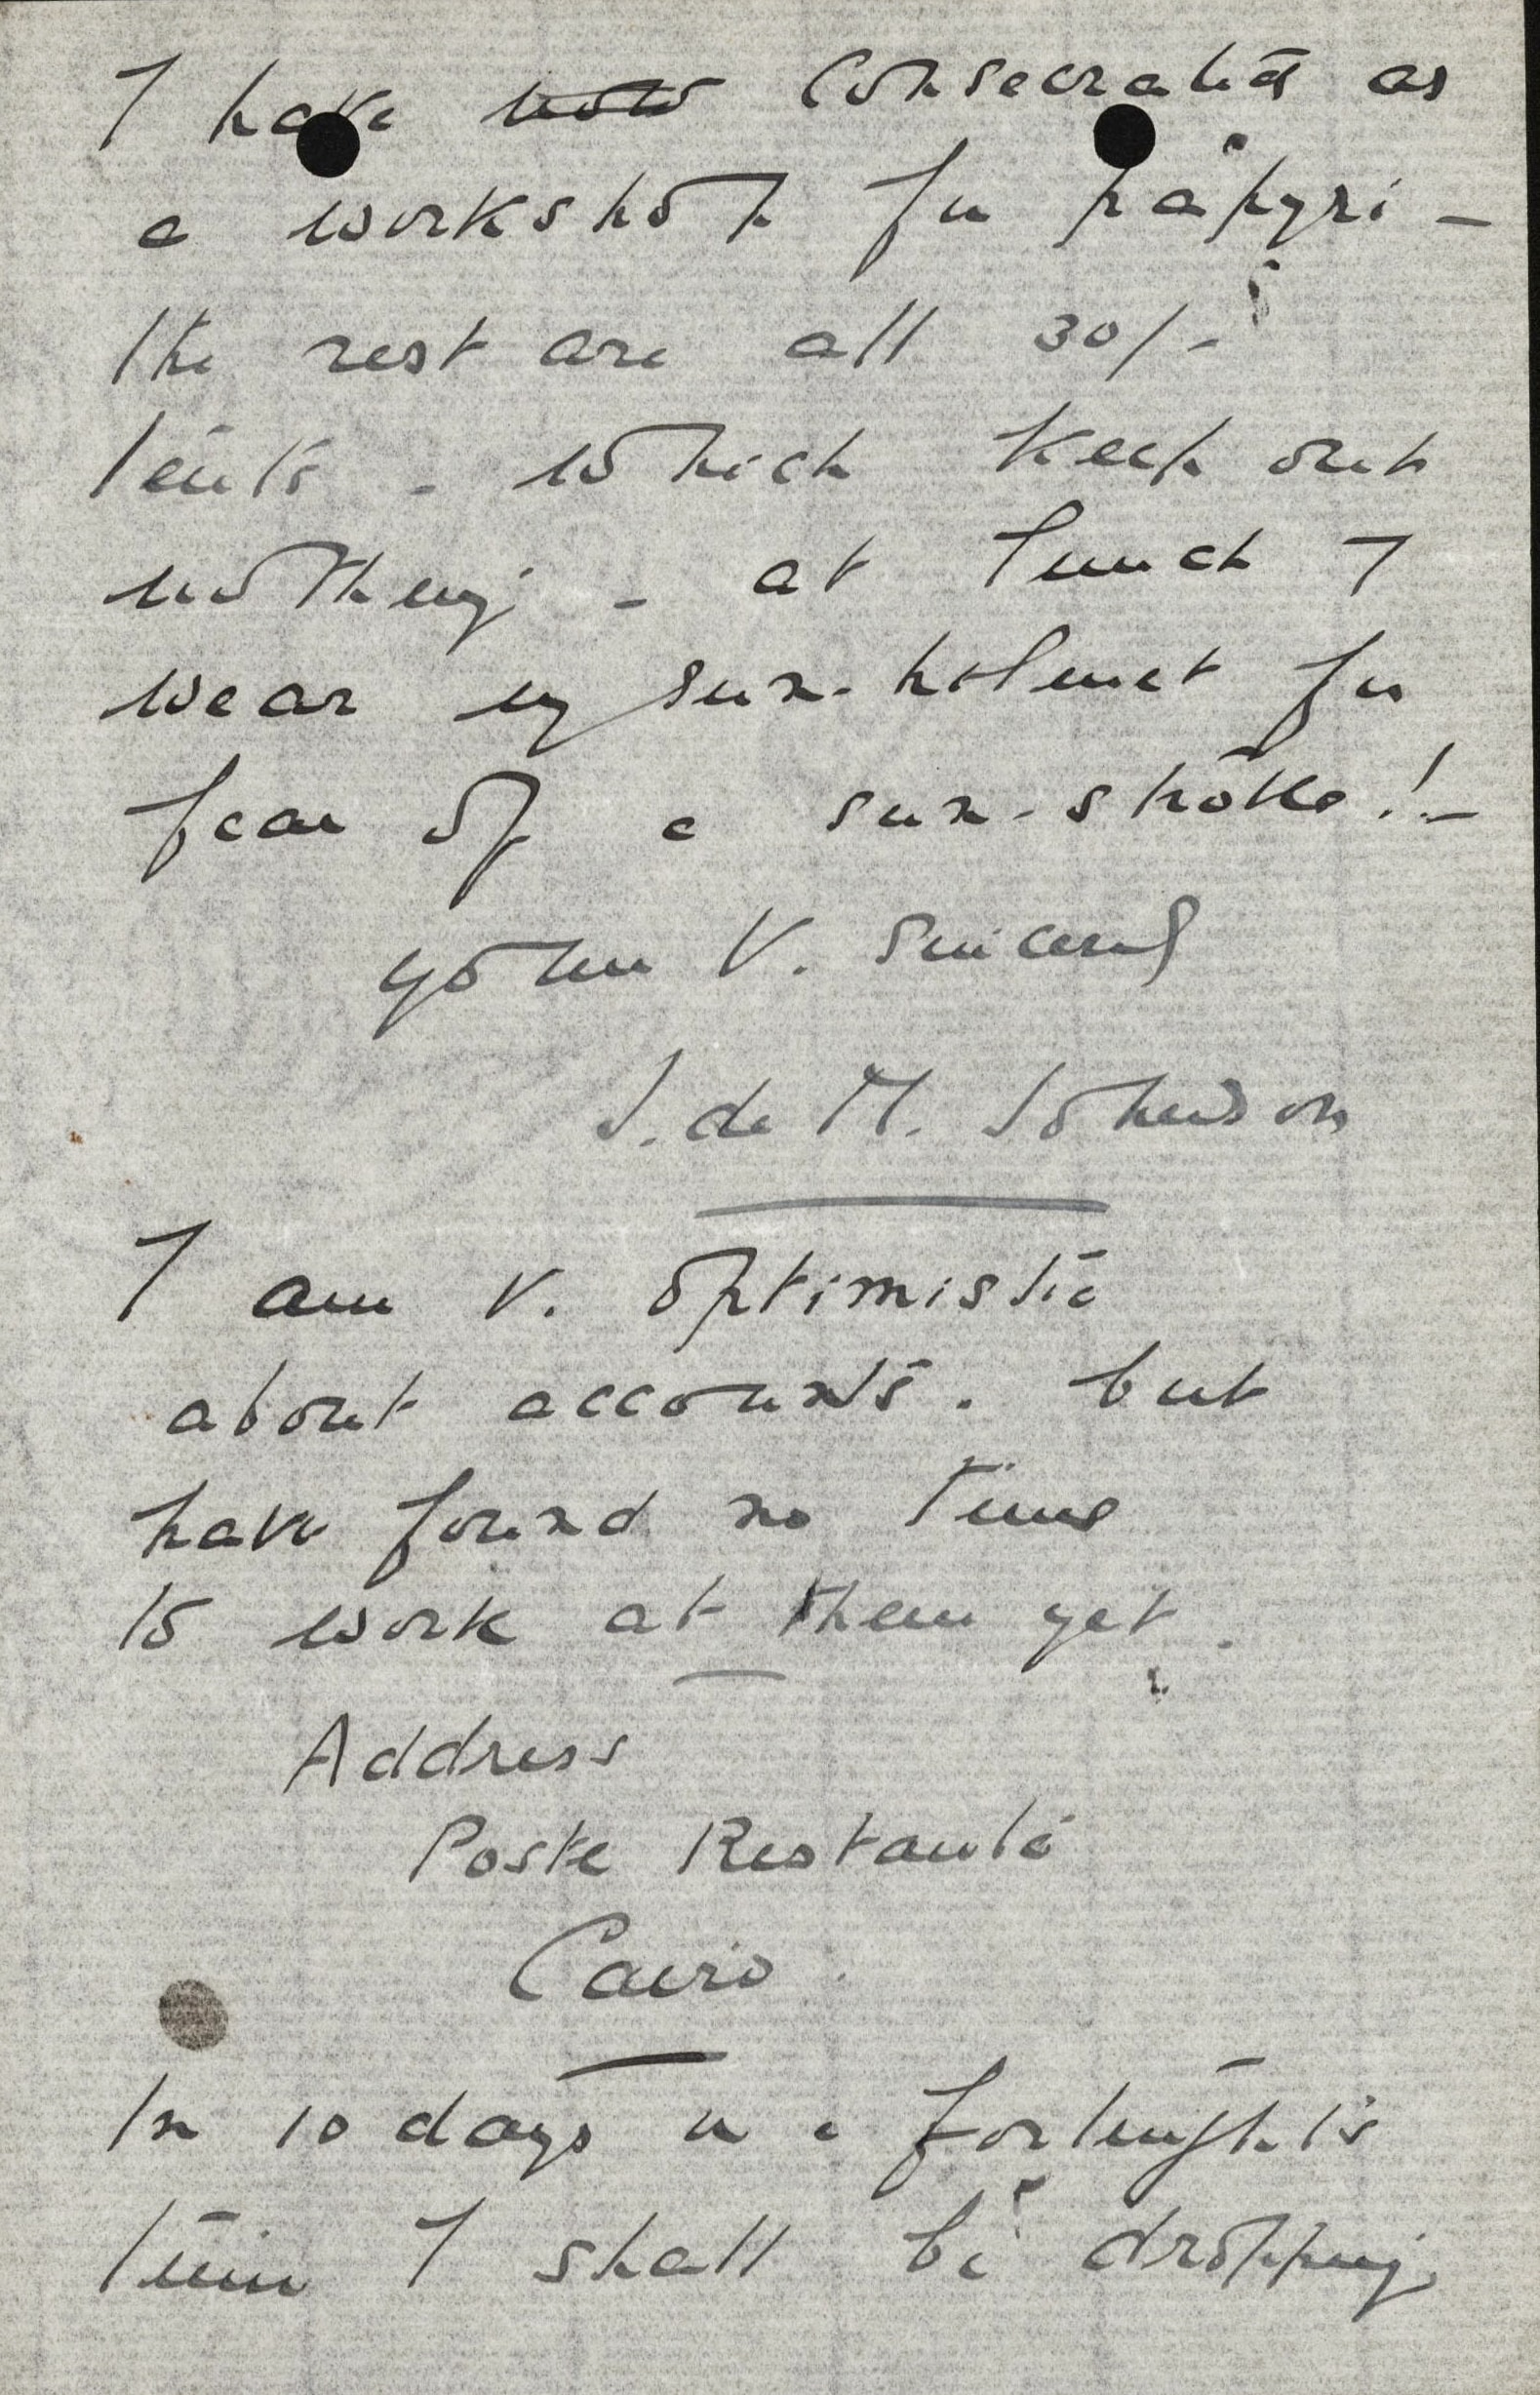 I have ~~now~~ consecrated as
a workshop for papyri –
the rest are all 30/-
tents - which keep out
nothing - at lunch I
wear my sun-helmet for
fear of a sun-stroke! –
yours V. sincerely
J. de M. Johnson
I am v. optimistic
about accounts. but
have found no time
to work at them yet.
Address
Poste Restante
Cairo.
In 10 days or a fortnight's
time I shall be dropping